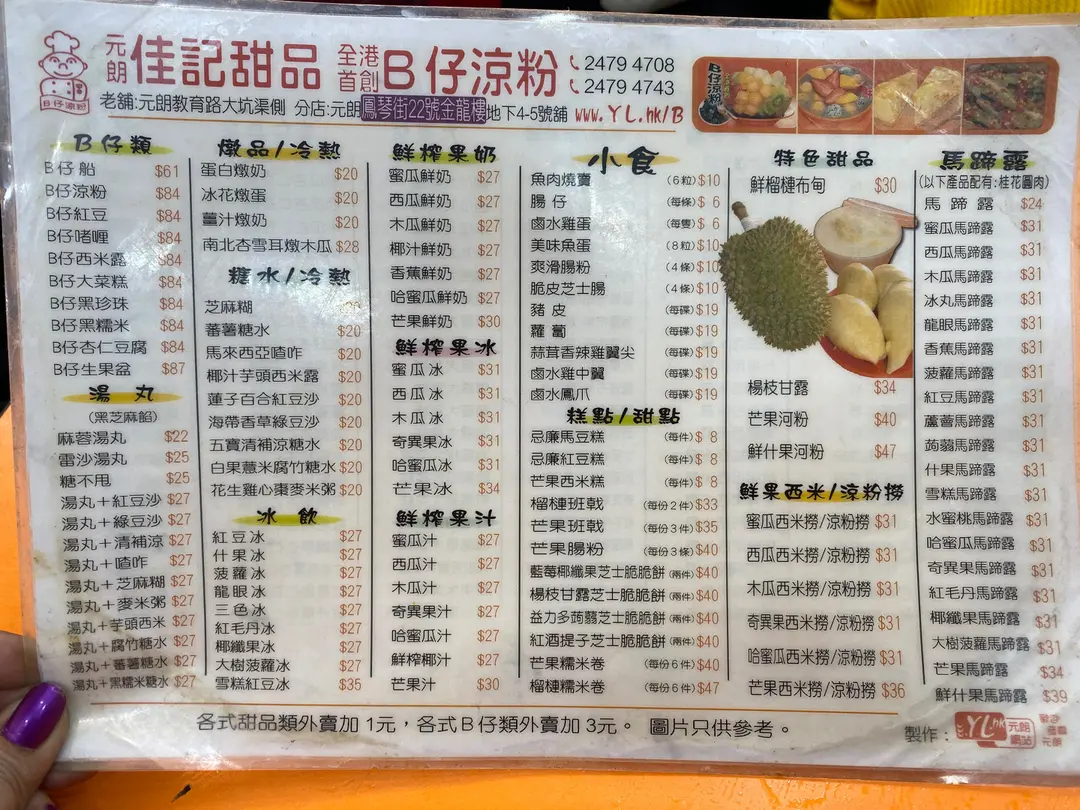 元朗 佳記甜品 全港首創 B仔涼粉 2479 4708
2479 4743
老舖:元朗教育路大坑渠側 分店:元朗鳳琴街22號金龍樓地下4-5號舖 www.YL.hk/B
B仔涼粉
B仔類
B仔船 $61
B仔涼粉 $84
B仔紅豆 $84
B仔啫喱 $84
B仔西米露 $84
B仔大菜糕 $84
B仔黑珍珠 $84
B仔黑糯米 $84
B仔杏仁豆腐 $84
B仔生果盆 $87
湯丸
(黑芝麻餡)
麻蓉湯丸 $22
雷沙湯丸 $25
糖不甩 $25
湯丸+紅豆沙 $27
湯丸+綠豆沙 $27
湯丸+清補涼 $27
湯丸+喳咋 $27
湯丸+芝麻糊 $27
湯丸+麥米粥 $27
湯丸+芋頭西米 $27
湯丸+腐竹糖水 $27
湯丸+蕃薯糖水 $27
湯丸+黑糯米糖水 $27
燉品/冷熱
蛋白燉奶 $20
冰花燉蛋 $20
薑汁燉奶 $20
南北杏雪耳燉木瓜 $28
糖水/冷熱
芝麻糊
蕃薯糖水 $20
馬來西亞喳咋 $20
椰汁芋頭西米露 $20
蓮子百合紅豆沙 $20
海帶香草綠豆沙 $20
五寶清補涼糖水 $20
白果薏米腐竹糖水 $20
花生雞心棗麥米粥 $20
冰飲
紅豆冰 $27
什果冰 $27
菠蘿冰 $27
龍眼冰 $27
三色冰 $27
紅毛丹冰 $27
椰纖果冰 $27
大樹菠蘿冰 $27
雪糕紅豆冰 $35
鮮榨果奶
蜜瓜鮮奶 $27
西瓜鮮奶 $27
木瓜鮮奶 $27
椰汁鮮奶 $27
香蕉鮮奶 $27
哈蜜瓜鮮奶 $27
芒果鮮奶 $30
鮮榨果冰
蜜瓜冰 $31
西瓜冰 $31
木瓜冰 $31
奇異果冰 $31
哈蜜瓜冰 $31
芒果冰 $34
鮮榨果汁
蜜瓜汁 $27
西瓜汁 $27
木瓜汁 $27
奇異果汁 $27
哈蜜瓜汁 $27
鮮榨椰汁 $27
芒果汁 $30
小食
魚肉燒賣 (6粒) $10
腸仔 (每條) $ 6
鹵水雞蛋 (每隻) $ 6
美味魚蛋 (8粒) $10
爽滑腸粉 (4條) $10
脆皮芝士腸 (4條) $10
豬皮 (每碟) $19
蘿蔔 (每碟) $19
蒜茸香辣雞翼尖 (每碟) $19
鹵水雞中翼 (每碟) $19
鹵水鳳爪 (每碟) $19
糕點/甜點
忌廉馬豆糕 (每件) $ 8
忌廉紅豆糕 (每件) $ 8
芒果西米糕 (每件) $ 8
榴槤班戟 (每份2件) $33
芒果班戟 (每份3件) $35
芒果腸粉 (每份3條) $40
藍莓椰纖果芝士脆脆餅 (兩件) $40
楊枝甘露芝士脆脆餅 (兩件) $40
益力多蒟蒻芝士脆脆餅 (兩件) $40
紅酒提子芝士脆脆餅 (兩件) $40
芒果糯米卷 (每份6件) $40
榴槤糯米卷 (每份6件) $47
特色甜品
鮮榴槤布甸 $30
楊枝甘露 $34
芒果河粉 $40
鮮什果河粉 $47
鮮果西米/涼粉撈
蜜瓜西米撈/涼粉撈 $31
西瓜西米撈/涼粉撈 $31
木瓜西米撈/涼粉撈 $31
奇異果西米撈/涼粉撈 $31
哈蜜瓜西米撈/涼粉撈 $31
芒果西米撈/涼粉撈 $36
馬蹄露
(以下產品配有:桂花圓肉)
馬蹄露 $24
蜜瓜馬蹄露 $31
西瓜馬蹄露 $31
木瓜馬蹄露 $31
冰丸馬蹄露 $31
龍眼馬蹄露 $31
香蕉馬蹄露 $31
菠蘿馬蹄露 $31
紅豆馬蹄露 $31
蘆薈馬蹄露 $31
蒟蒻馬蹄露 $31
什果馬蹄露 $31
雪糕馬蹄露 $31
水蜜桃馬蹄露 $31
哈蜜瓜馬蹄露 $31
奇異果馬蹄露 $31
紅毛丹馬蹄露 $31
椰纖果馬蹄露 $31
大樹菠蘿馬蹄露 $31
芒果馬蹄露 $34
鮮什果馬蹄露 $39
各式甜品類外賣加 1元，各式B仔類外賣加 3元。 圖片只供參考。
製作： YL.hk 元朗網站